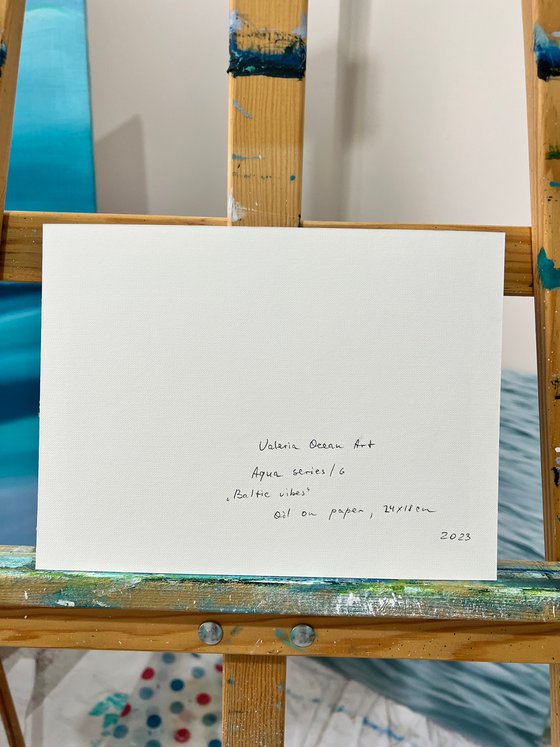 Valeria Ocean Art
Aqua series/6
„Baltic vibes"
Oil on paper, 24x18cm
2023